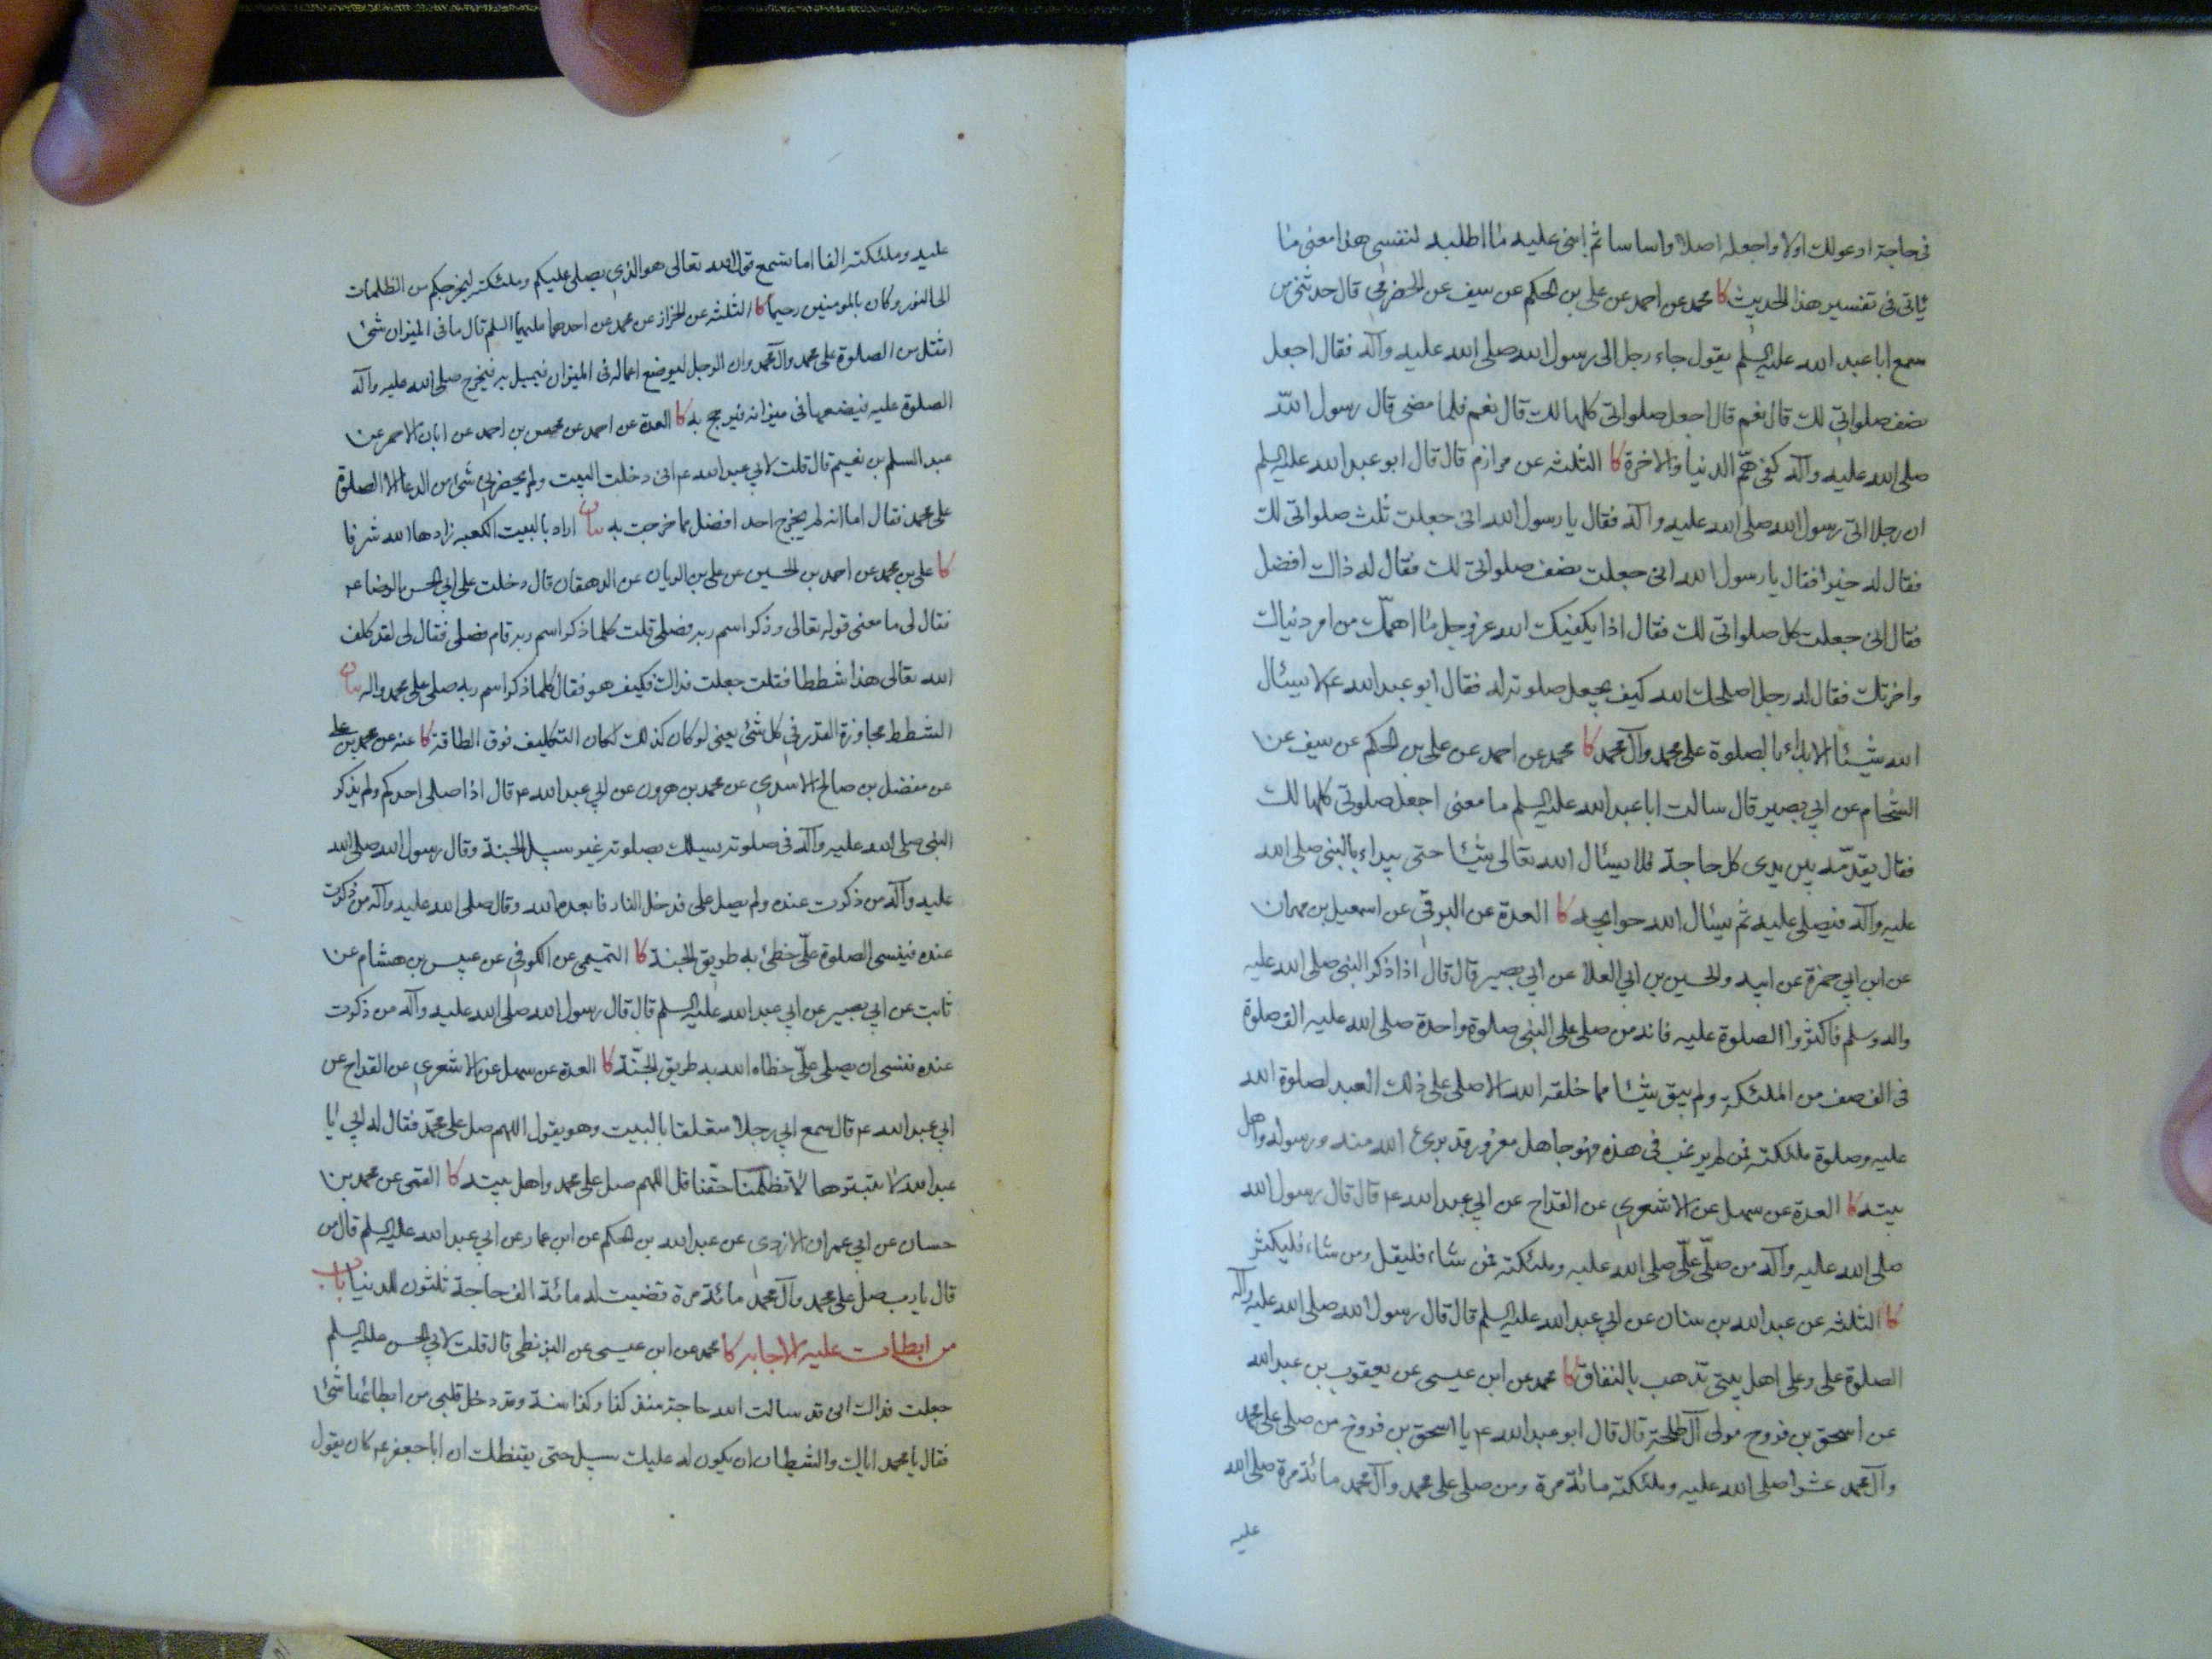 فى حاجة ادعو لك اولا واجعله اصلا واساسا ثم ابنى عليه ما اطلبه لنفسى هذا معنى ما
ياتى فى تفسير هذا الحديث كا محمد عن احمد عن على بن الحكم عن سيف عن الحضرمى قال حدثنى من
سمع ابا عبد الله عليه السلم يقول جاء رجل الى رسول الله صلى الله عليه وآله فقال اجعل
نصف صلواتى لك قال نعم قال اجعل صلواتى كلها لك قال نعم فلما مضى قال رسول الله
صلى الله عليه وآله كفى همّ الدنيا والاخرة كا الثلثه عن مرازم قال قال ابو عبد الله عليه السلم
ان رجلا اتى رسول الله صلى الله عليه وآله فقال يا رسول الله انى جعلت ثلث صلواتى لك
فقال له خيرا فقال يا رسول الله انى جعلت نصف صلواتى لك فقال له ذاك افضل
فقال انى جعلت كل صلواتى لك فقال اذا يكفيك الله عز وجل ما اهمّك من امر دنياك
واخرتك فقال له رجل اصلحك الله كيف يجعل صلوته له فقال ابو عبد الله ع لا يسئال
الله شيئا الا بداء بالصلوة على محمد وآل محمد كا محمد عن احمد عن على بن الحكم عن سيف عن
الشحام عن ابى بصير قال سالت ابا عبد الله عليه السلم ما معنى اجعل صلوتى كلها لك
فقال يقدّمه بين يدى كل حاجة فلا يسئال الله تعالى شيئا حتى يبداء بالنبى صلى الله
عليه وآله فيصلى عليه ثم يسئال الله حوايجه كا العدة عن البرقى عن اسمعيل بن مهران
عن ابن ابى حمزة عن ابيه والحسين بن ابى العلا عن ابى بصير قال قال اذا ذكر النبى صلى الله عليه
واله وسلم فاكثروا الصلوة عليه فانه من صلى على النبى صلوة واحدة صلى الله عليه الف صلوة
فى الف صف من الملئكة ولم يبق شيئا مما خلقه الله الا صلى على ذلك العبد لصلوة الله
عليه وصلوة ملئكته فمن لم يرغب فى هذه فهو جاهل مغرور قد برئ الله منه ورسوله واهل
بيته كا العدة عن سهل عن الاشعرى عن القداح عن ابى عبد الله ع قال قال رسول الله
صلى الله عليه وآله من صلّى علّى صلى الله عليه وملئكته فمن شاء فليقل ومن شاء فليكثر
كا الثلثه عن عبد الله بن سنان عن ابى عبد الله عليه السلم قال قال رسول الله صلى الله عليه وآله
الصلوة على وعلى اهل بيتى تذهب بالنفاق كا محمد عن ابن عيسى عن يعقوب بن عبد الله
عن اسحق بن فروح مولى آل طلحة قال قال ابو عبد الله ع يا اسحق بن فروخ من صلى على محمد
وآل محمد عشرا صلى الله عليه وملئكته مائة مرة ومن صلى على محمد وآل محمد مائة مرة صلى الله
عليه
عليه وملئكته الفا اما تسمع قول الله تعالى هو الذى يصلى عليكم وملئكته ليخرجكم من الظلمات
الى النور وكان بالمومنين رحيما كا الثلثه عن الخراز عن محمد عن احدهما عليهما السلم قال ما فى الميزان شئ
اثقل من الصلوة على محمد وآل محمد وان الرجل ليوضع اعماله فى الميزان فيميل به فيخرج صلى الله عليه وآله
الصلوة عليه فيضعها فى ميزانه فيرجح به كا العدة عن احمد عن محسن بن احمد عن ابان الاحمر عن
عبد السلم بن نعيم قال قلت لابى عبد الله ع انى دخلت البيت ولم يحضرنى شئ من الدعا الا الصلوة
على محمد فقال اما انه لم يخرج احد افضل مما خرجت به بيان اراد بالبيت الكعبه زادها الله شرفا
كا على بن محمد عن احمد بن الحسين عن على بن الريان عن الدهقان قال دخلت على ابى الحسن الرضا ع
فقال لى ما معنى قوله تعالى وذكر اسم ربه فصلى قلت كلما ذكر اسم ربه قام فصلى فقال لى لقد كلف
الله تعالى هذا شططا فقلت جعلت فداك فكيف هو فقال كلما ذكر اسم ربه صلى على محمد واله بيان
الشطط مجاوزة القدر فى كل شئ يعنى لو كان كذلك لكان التكليف فوق الطاقة كا عنه عن محمد بن على
عن مفضل بن صالح الاسدى عن محمد بن هرون عن ابى عبد الله ع قال اذا صلى احدكم ولم يذكر
النبى صلى الله عليه وآله فى صلوته يسلك بصلوته غير سبيل الجنة وقال رسول الله صلى الله
عليه وآله من ذكرت عنده ولم يصل على فدخل النار فابعده الله وقال صلى الله عليه وآله من ذكرت
عنده فنسى الصلوة علّى خطئ به طريق الجنة كا التميمى عن الكوفى عن عبيس بن هشام عن
ثابت عن ابى بصير عن ابى عبد الله عليه السلم قال قال رسول الله صلى الله عليه وآله من ذكرت
عنده فنسى ان يصلى علّى خطاه الله به طريق الجنّة كا العدة عن سهل عن الاشعرى عن القداح عن
ابى عبد الله ع قال سمع ابى رجلا متعلقا بالبيت وهو يقول اللهم صل على محمّد فقال له ابى يا
عبد الله لا تبترها لا تظلمنا حقّنا قل اللهم صل على محمد واهل بيته كا القمى عن محمد بن
حسان عن ابى عمران الازدى عن عبد الله بن الحكم عن ابن عمار عن ابى عبد الله عليه السلم قال من
قال يا رب صل على محمد وآل محمد مائة مرة قضيت له مائة الف حاجة ثلثون للدنيا باب
من ابطات عليه الاجابه كا محمد عن ابن عيسى عن البزنطى قال قلت لابى الحسن عليه السلم
جعلت فداك انى قد سالت الله حاجة منذ كذا وكذا سنة وقد دخل قلبى من ابطائها شئ
فقال يا محمد اياك والشيطان ان يكون له عليك سبيل حتى يقنطك ان ابا جعفر ع كان يقول